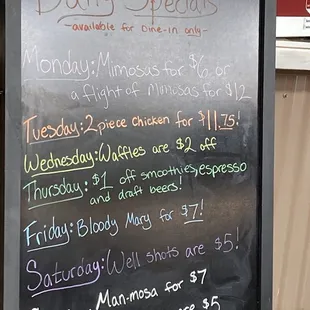 Daily Specials
-available for Dine-in only-
Monday: Mimosas for $6 or
a flight of mimosas for $12
Tuesday: 2 piece chicken for $11.75!
Wednesday: Waffles are $2 off
Thursday: $1 off smoothies, espresso
and draft beers!
Friday: Bloody Mary for $7!
Saturday: Well shots are $5!
Man-mosa for $7
$5